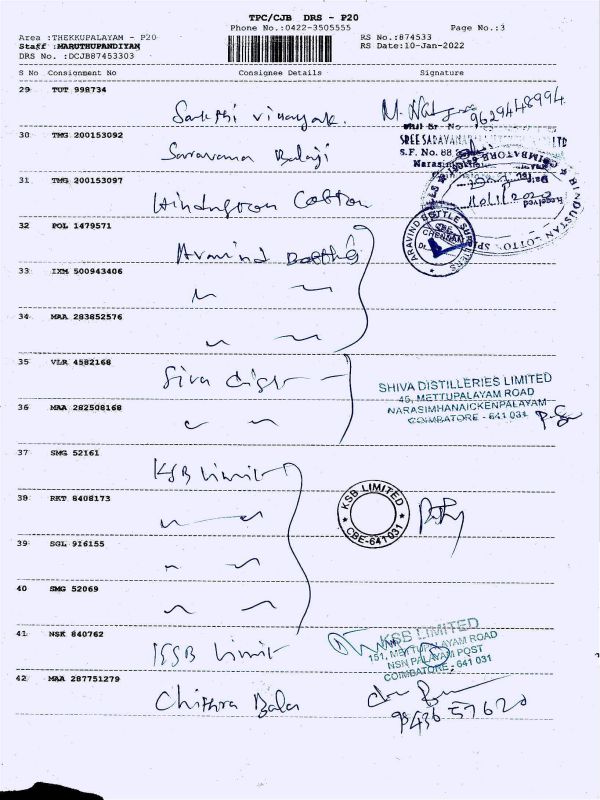 TPC/CJB DRS - P20
Phone No.:0422-3505555
Page No.:3
Area :THEKKUPALAYAM - P20
RS No.:874533
Staff :MARUTHUPANDIYAN
RS Date:10-Jan-2022
DRS No. :DCJB87453303
S No Consignment No Consignee Details Signature
29 TUT 998734
Sakthi Vinayak.
9629448994
30 TMG 200153092
Saravana Balaji
SREE SARAVANA LTD
S.F. No. 88
31 TMG 200153097
Hindustan Cotton
HINDUSTAN COTTON SP
COIMBATORE
Received
32 POL 1479571
Aravind Bottle
ARAVIND BOTTLE SUPPLIERS
33 IXM 500943406
34 MAA 283852576
35 VLR 4582168
Siva
SHIVA DISTILLERIES LIMITED
45, METTUPALAYAM ROAD
NARASIMHANAICKENPALAYAM
COIMBATORE - 641 031
36 MAA 282508168
37 SMG 52161
KSB Limit
38 RKT 8408173
KSB LIMITED
CBE-641 031
39 SGL 916155
40 SMG 52069
41 NSK 840762
KSB Limit
KSB LIMITED
151, METTUPALAYAM ROAD
NSN PALAYAM POST
COIMBATORE - 641 031
42 MAA 287751279
Chithra Bala
98436 57620